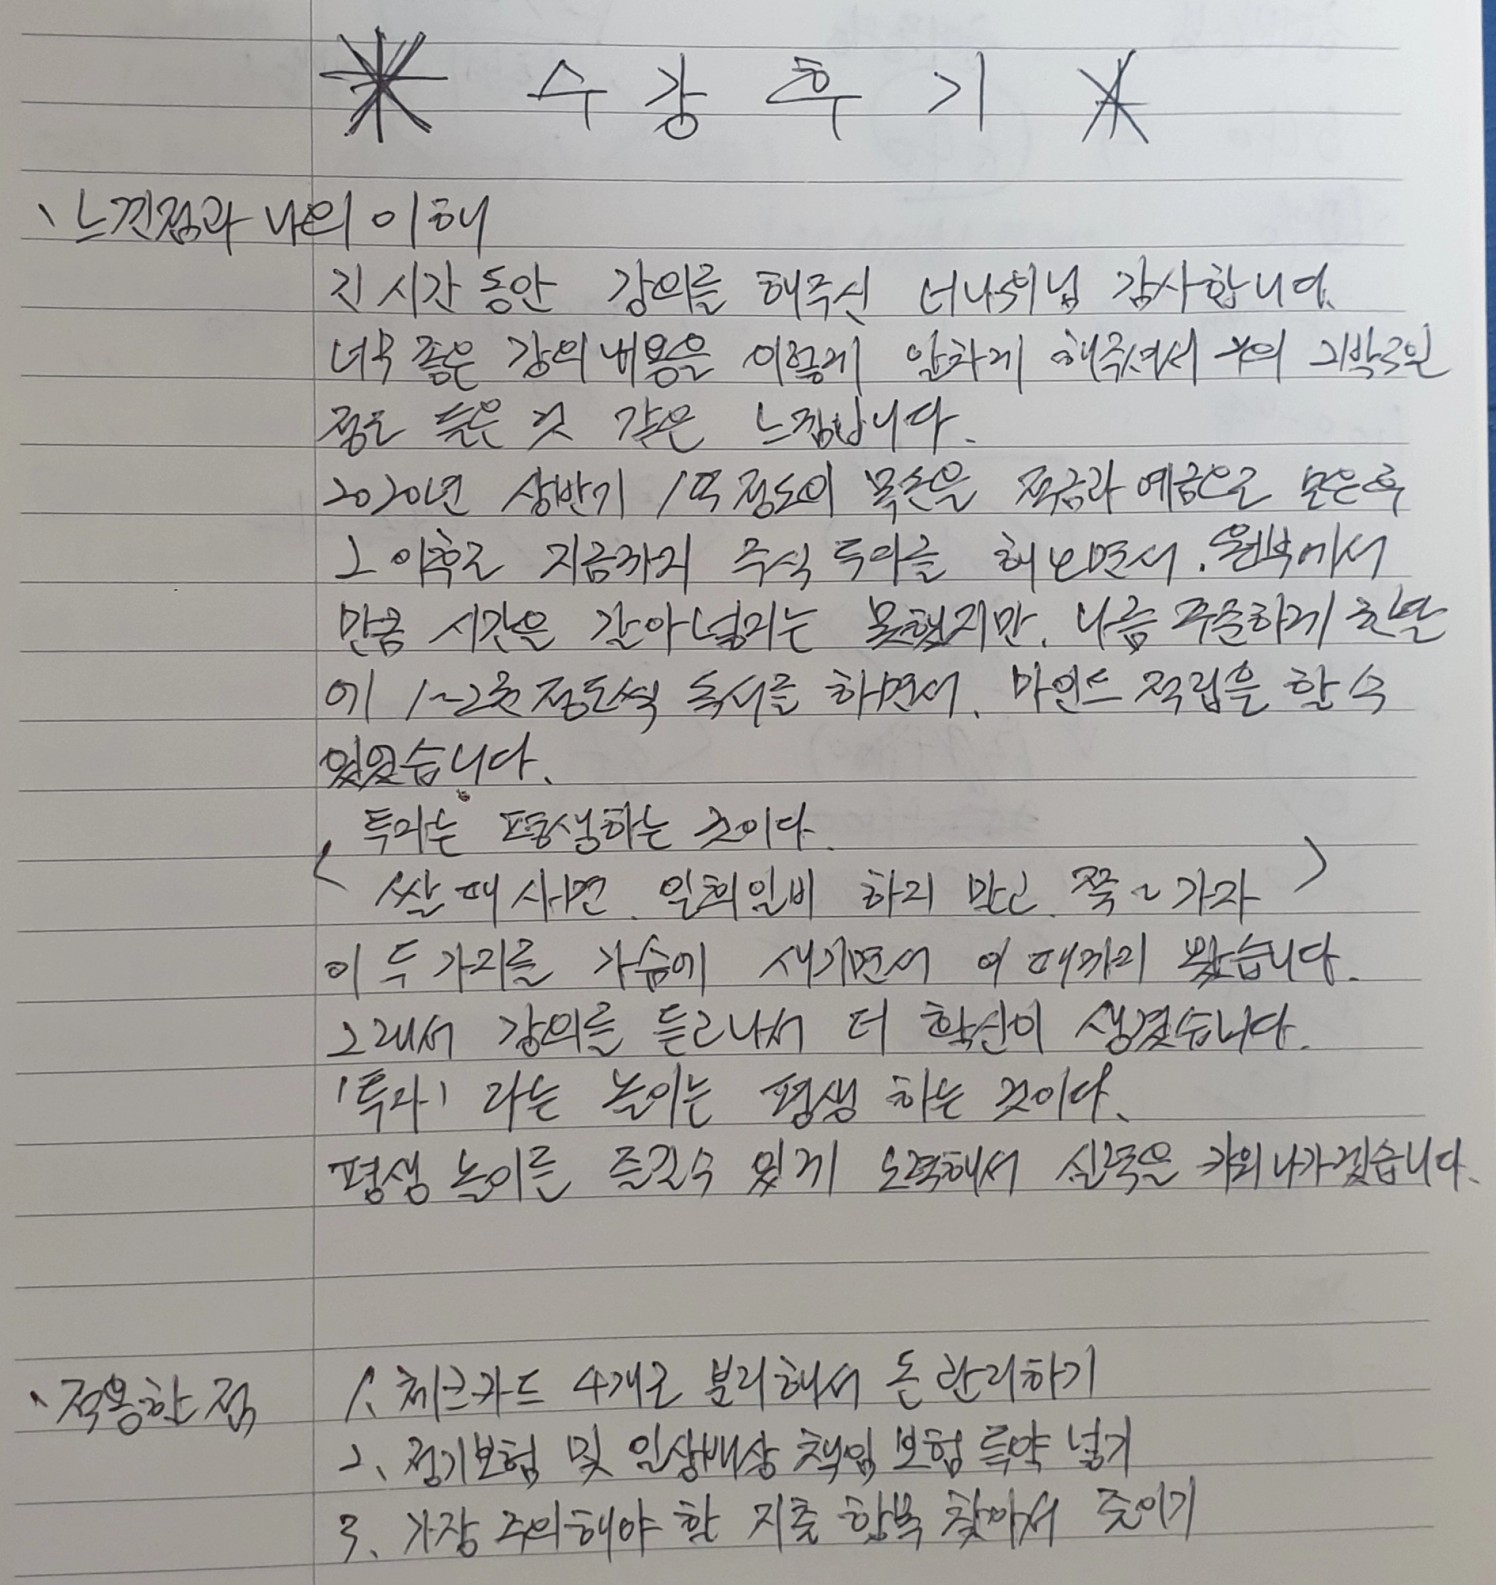 * 수 강 후 기 *
、느낀점과 나의 이해
긴 시간 동안 강의를 해주신 너나위님 감사합니다.
너무 좋은 강의 내용을 이렇게 알차게 해주셔서 거의 2박3일
정도 들은 것 같은 느낌입니다.
2020년 상반기 1억 정도의 목돈을 적금과 예금으로 모은 후
그 이후로 지금까지 주식 투자를 해보면서. 월부에서
만큼 시간은 갈아넣지는 못했지만, 나름 꾸준하게 한달
에 1~2권 정도씩 독서를 하면서, 마인드 적립을 할 수
있었습니다.
투자는 평생하는 것이다.
< 쌀 때 사면, 일희일비 하지 말고, 쭉~ 가자 >
이 두 가지를 가슴에 새기면서 이 때까지 왔습니다.
그래서 강의를 듣고나서 더 확신이 생겼습니다.
'투자' 라는 놀이는 평생 하는 것이다.
평생 놀이를 즐길수 있게 노력해서 실력을 키워 나가겠습니다.
、적용할 점
1. 체크카드 4개로 분리해서 돈 관리하기
2、정기보험 및 일상배상 책임 보험 특약 넣기
3、가장 주의해야 할 지출 항목 찾아서 줄이기